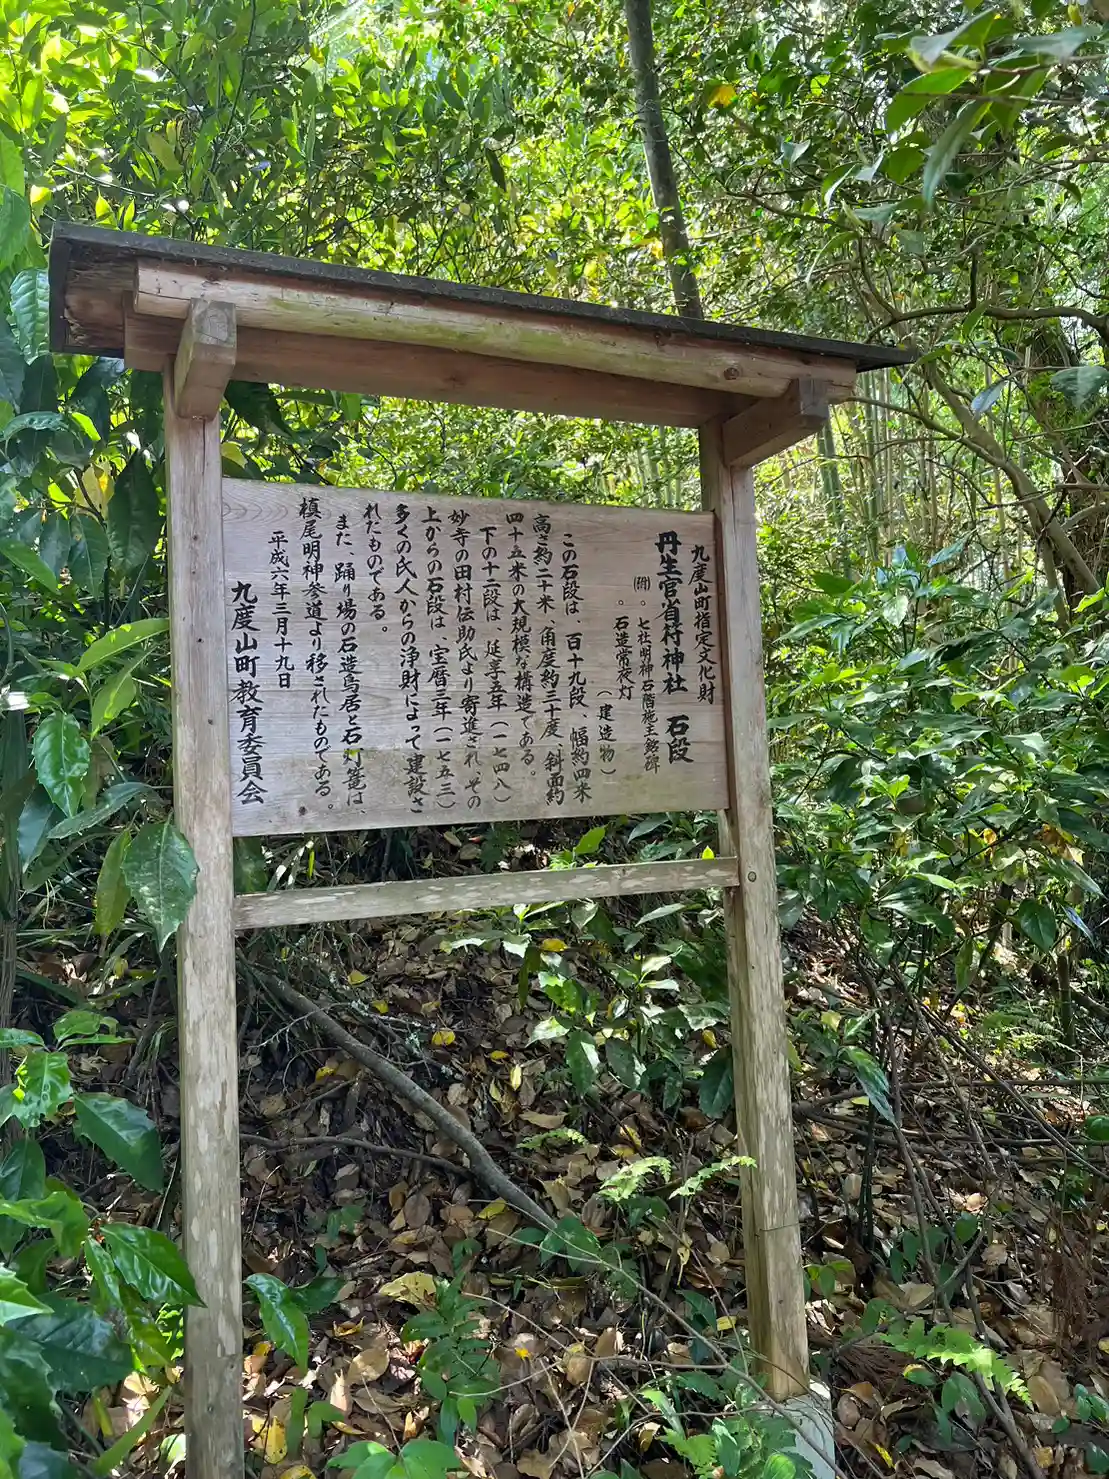 九度山町指定文化財
丹生官省符神社 石段
(附)。七社明神石階施主銘碑
。石造常夜灯
(建造物)
この石段は、百十九段、幅約四米
高さ約二十米、角度約三十度、斜面約
四十五米の大規模な構造である。
下の十二段は、延享五年(一七四八)
妙寺の田村伝助氏より寄進され、その
上からの石段は、宝暦三年(一七五三)
多くの氏人からの浄財によって建設さ
れたものである。
また、踊り場の石造鳥居と石灯篭は、
槙尾明神参道より移されたものである。
平成六年三月十九日
九度山町教育委員会